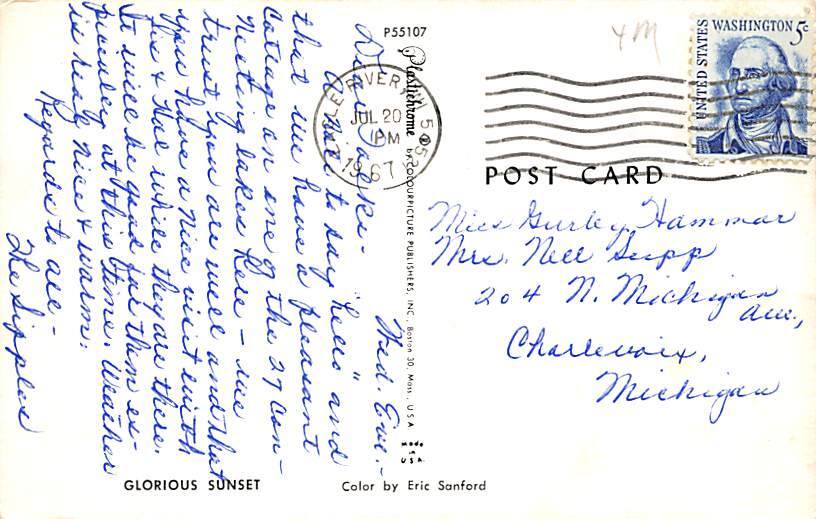 P55107
Plastichrome by COLOURPICTURE PUBLISHERS, INC., Boston 30, Mass., U.S.A.
Made
in
U.S.A.
Wed. Eve.-
Dear
Just to say "hello" and
that we have a pleasant
Cottage on one of the 27 Con-
necting lakes here - we
trust you are well and that
you have a nice visit with
& Hal while they are there.
It will be good for them es-
pecially at this time. Weather
is real nice & warm.
Regards to all -
The Sipples
GLORIOUS SUNSET
Color by Eric Sanford
RIVER,
JUL 20
1 PM
1967
UNITED STATES
WASHINGTON 5c
POST CARD
Miss Gurley Hammar
Mrs. Nell Supp
204 N. Michigan
Ave.,
Charlevoix,
Michigan